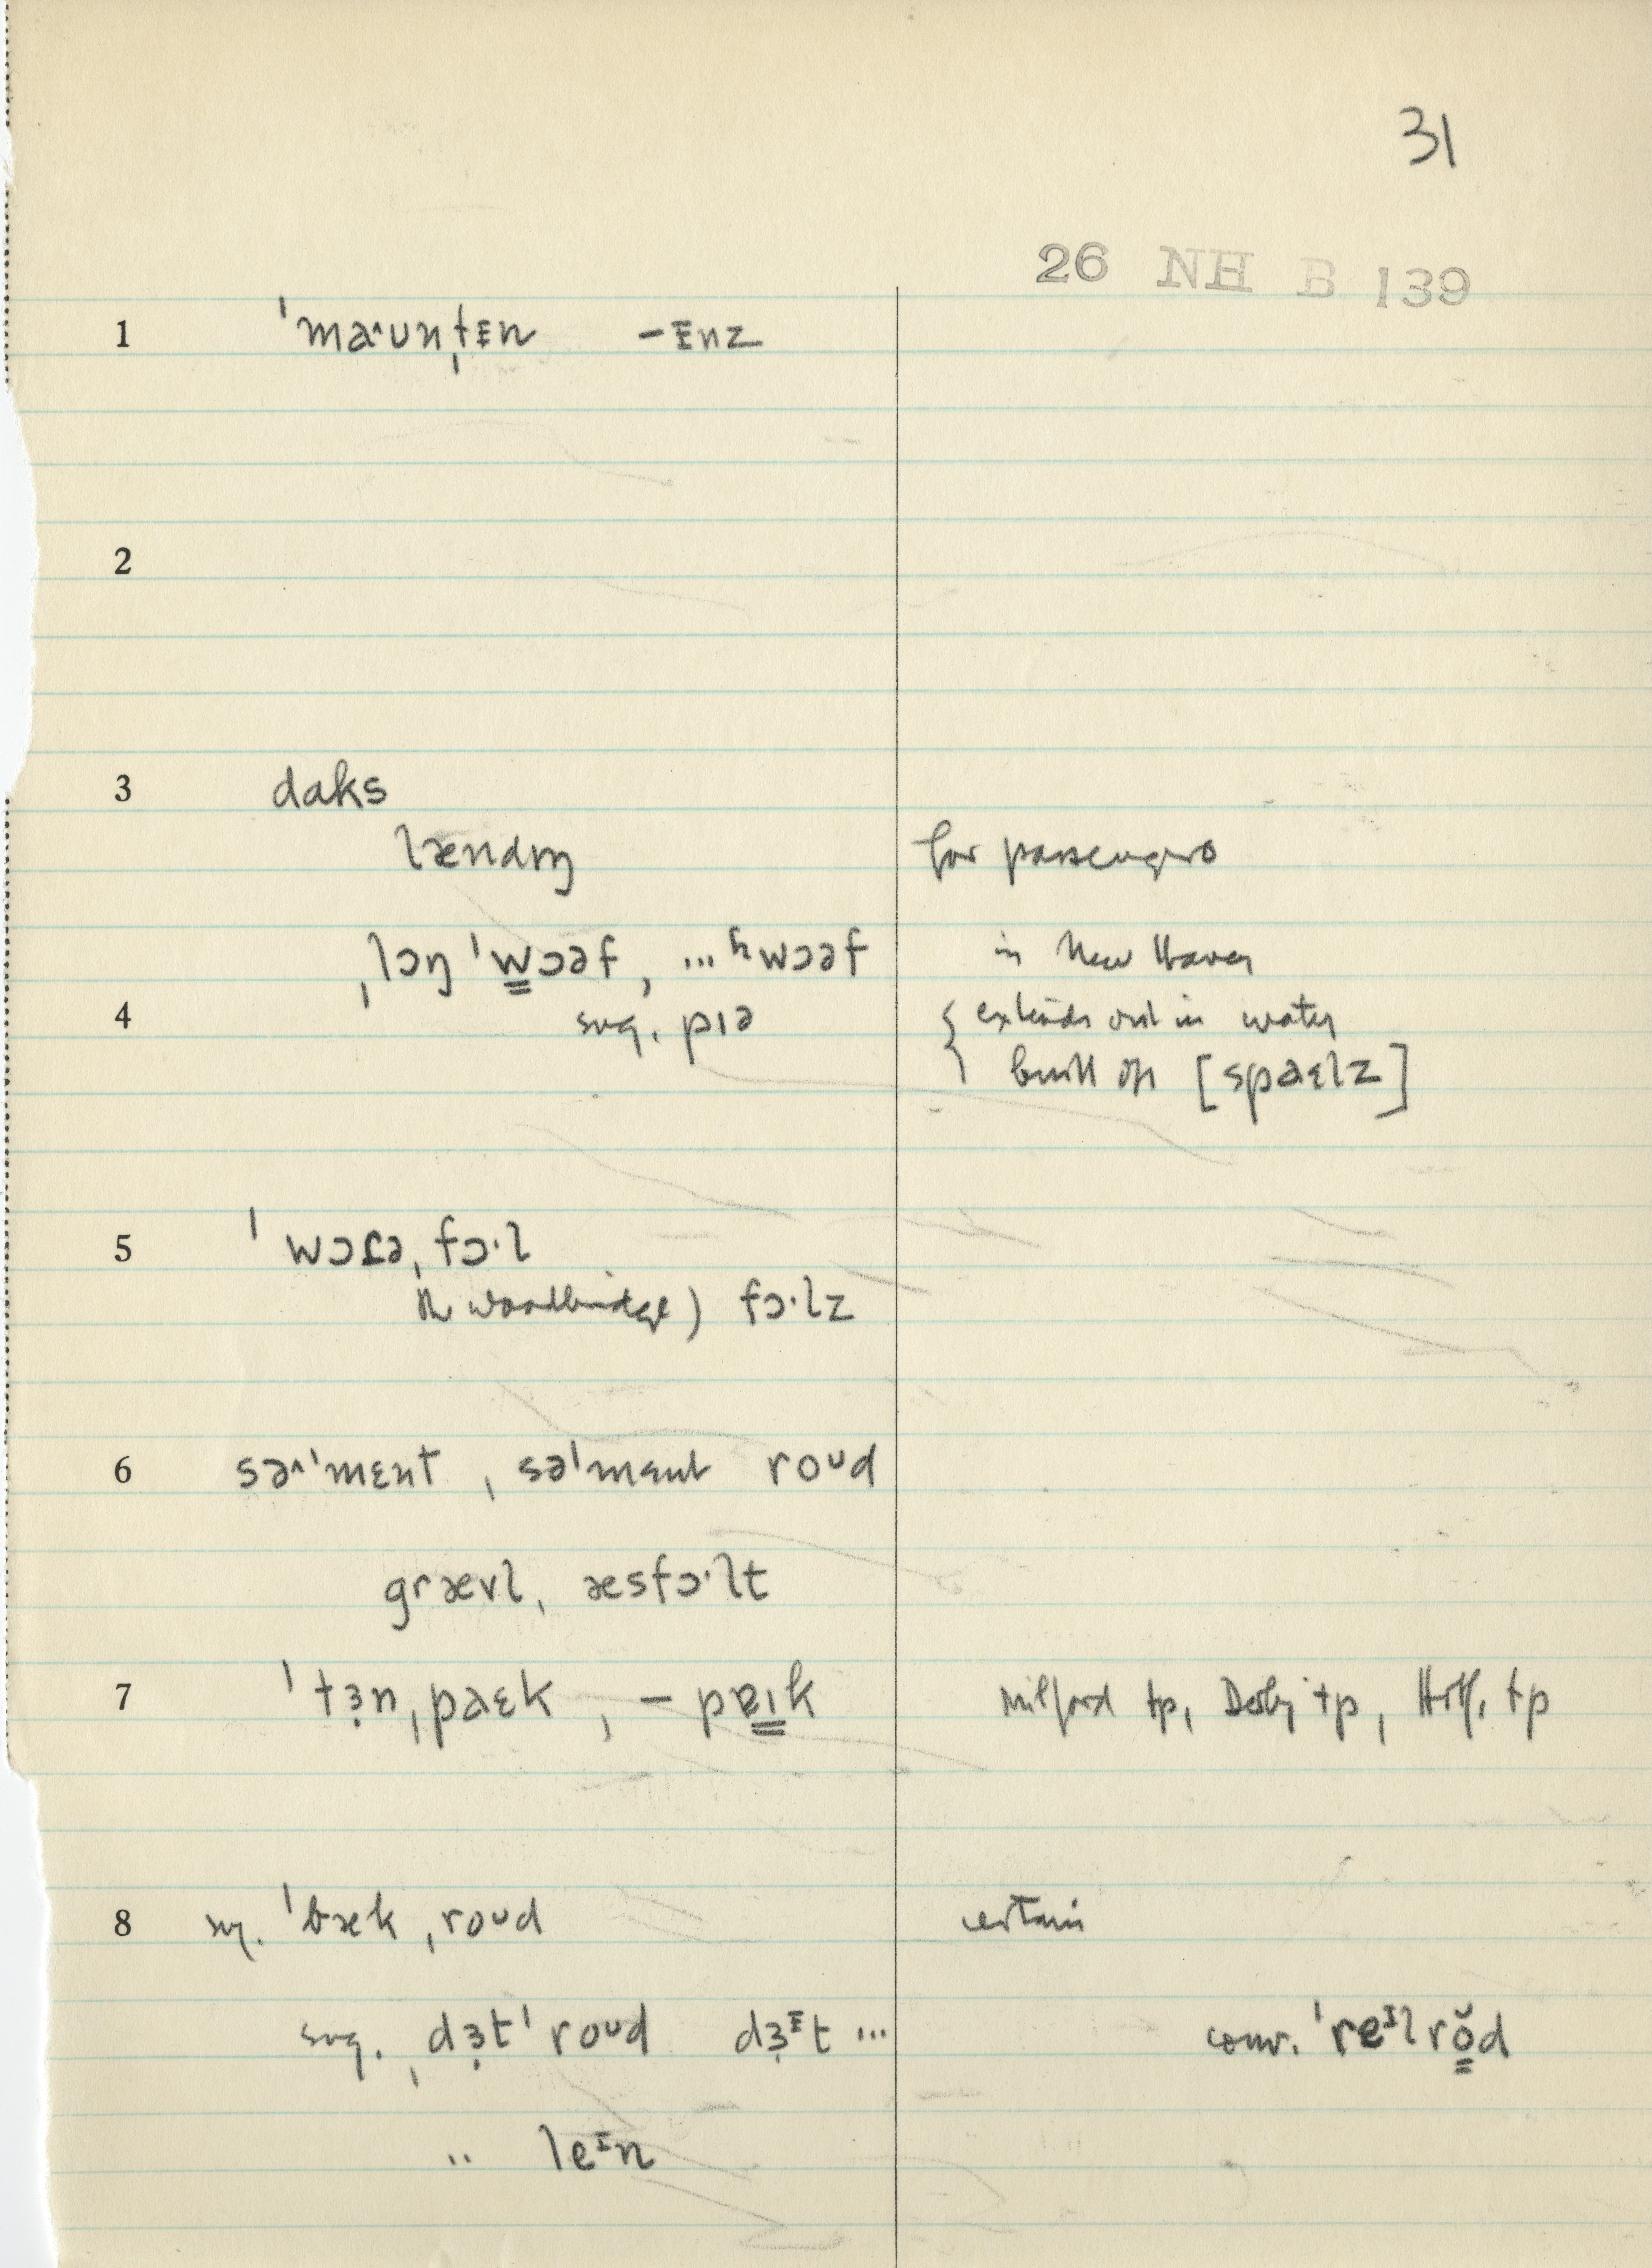 31
26 NH B 139
1 ˈmaˑʌunˌtɪ̵n –ɪ̵nz
2
3 daks
lændɪŋ for passengers
ˌlɔŋ ˈw̳ɔəf, ...ʰwɔəf in New Haven
4 sug. pɪə { extends out in water
built on [spaɛlz]
5 ˈwɔɾəˌfɔˑl
in Woodbridge) fɔˑlz
6 sə^ˈmɛnt, səˈmɛnt roᴜd
grævl, æsfɔˑlt
7 ˈtɜ̣nˌpaɛk, –pɐɪ̳k Milford tp, Derby tp, Htf. tp
8 sg. ˈbækˌroᴜd certain
sug. ˌdɜ̣tˈroᴜd dɜ̣ᵻt ... conv. ˈreᴵlrŏ̳d
" leᴵn